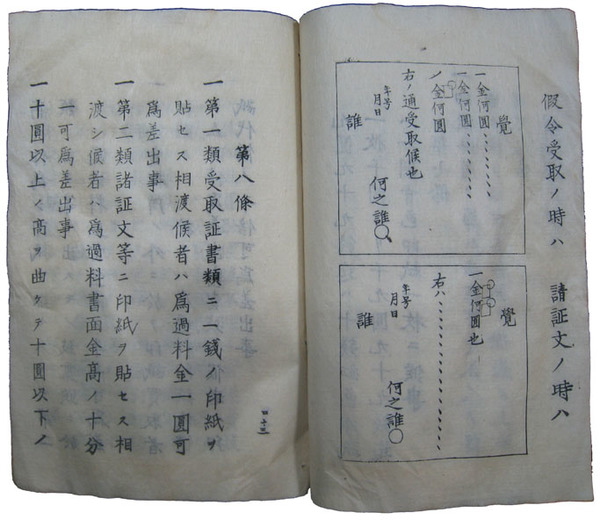 假令受取ノ時ハ 請証文ノ時ハ
覺
一金何圓、、、、、、
一金何圓、、、、、、
〆金何圓
右ノ通受取候也
年号月日 何之誰〇
誰
覺
一金何圓也
右ハ、、、、、、、、、
年号月日 何之誰〇
誰
第八條
一第一類受取証書類ニ一錢ノ印紙ヲ
貼セス相渡候者ハ爲過料金一圓可
爲差出事
一第二類諸証文等ニ印紙ヲ貼セス相
渡シ候者ハ爲過料書面金高ノ十分
一可爲差出事
一十圓以上ノ高ヲ曲ケテ十圓以下ノ